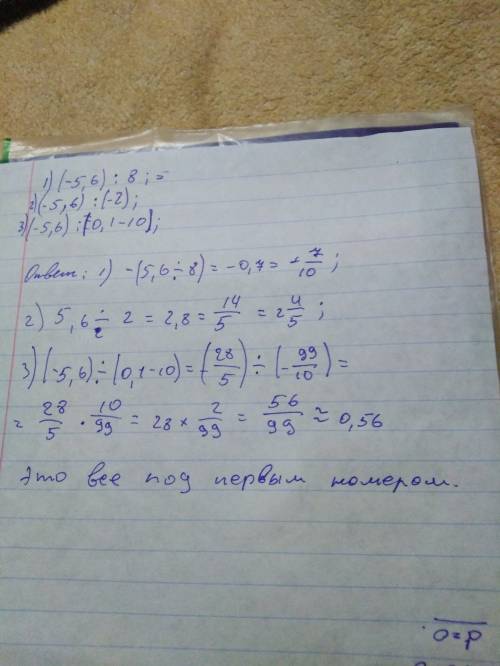 1) (-5,6) : 8 ; =
2) (-5,6) : (-2) ;
3) (-5,6) : [0,1-10] ;
Ответ : 1) -(5,6 ÷ 8) = -0,7 = - 7/10 ;
2) 5,6 ÷ 2 = 2,8 = 14/5 = 2 4/5 ;
3) (-5,6) ÷ (0,1-10) = (-28/5) ÷ (-99/10) =
= 28/5 · 10/99 = 28 × 2/99 = 56/99 ≈ 0,56
Это все под первым номером.
0=p